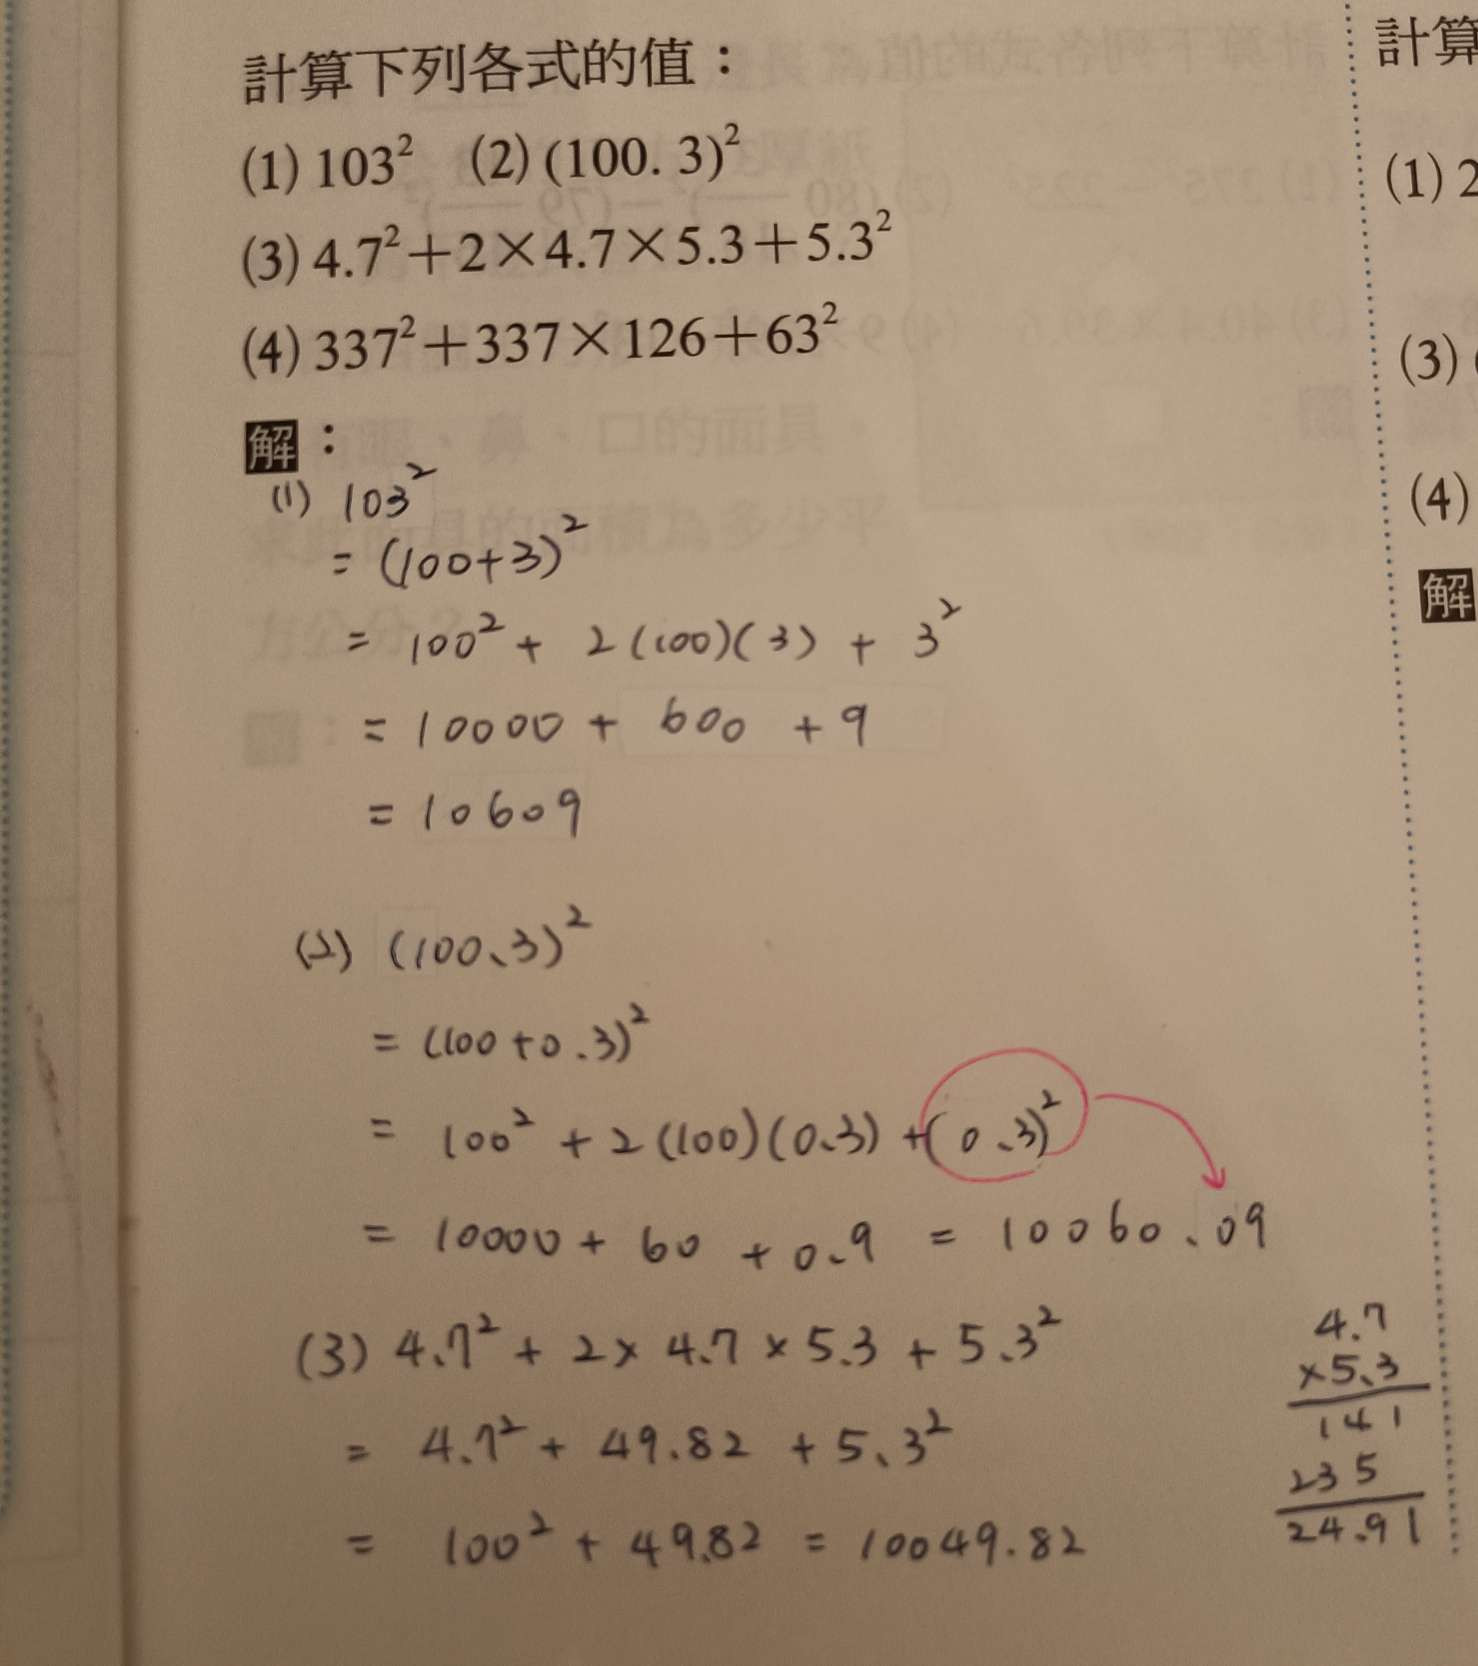 計算下列各式的值：
(1) 103² (2) (100. 3)²
(3) 4.7²＋2×4.7×5.3＋5.3²
(4) 337²＋337×126＋63²
解：
(1) 103²
= (100+3)²
= 100² + 2(100)(3) + 3²
= 10000 + 600 + 9
= 10609
(2) (100.3)²
= (100+0.3)²
= 100² + 2(100)(0.3) + (0.3)²
= 10000 + 60 + 0.9 = 10060.09
(3) 4.7² + 2× 4.7 × 5.3 + 5.3²
= 4.7² + 49.82 + 5.3²
= 100² + 49.82 = 10049.82
4.7
×5.3
141
235
24.91
計算
(1) 2
(3)
(4)
解